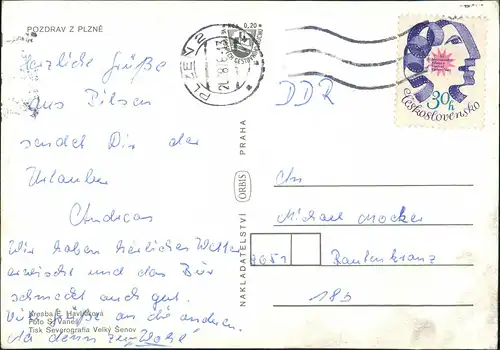 POZDRAV Z PLZNĚ
Herzliche Grüße
aus Pilsen
sendet Dir der
Urlauber
Andreas
Wir haben herrliches Wetter
erwischt und das Bier
schmeckt auch gut.
Viele Grüße an die anderen.
Na denn zum Wohle!
Kresba E. Havlíková
Foto S. Vaněš
Tisk Severografia Velký Šenov
NAKLADATELSTVÍ ORBIS PRAHA
Kčs 0,20
30h
Československo
DDR
An
Michael Mocker
9651 Rautenkranz
183